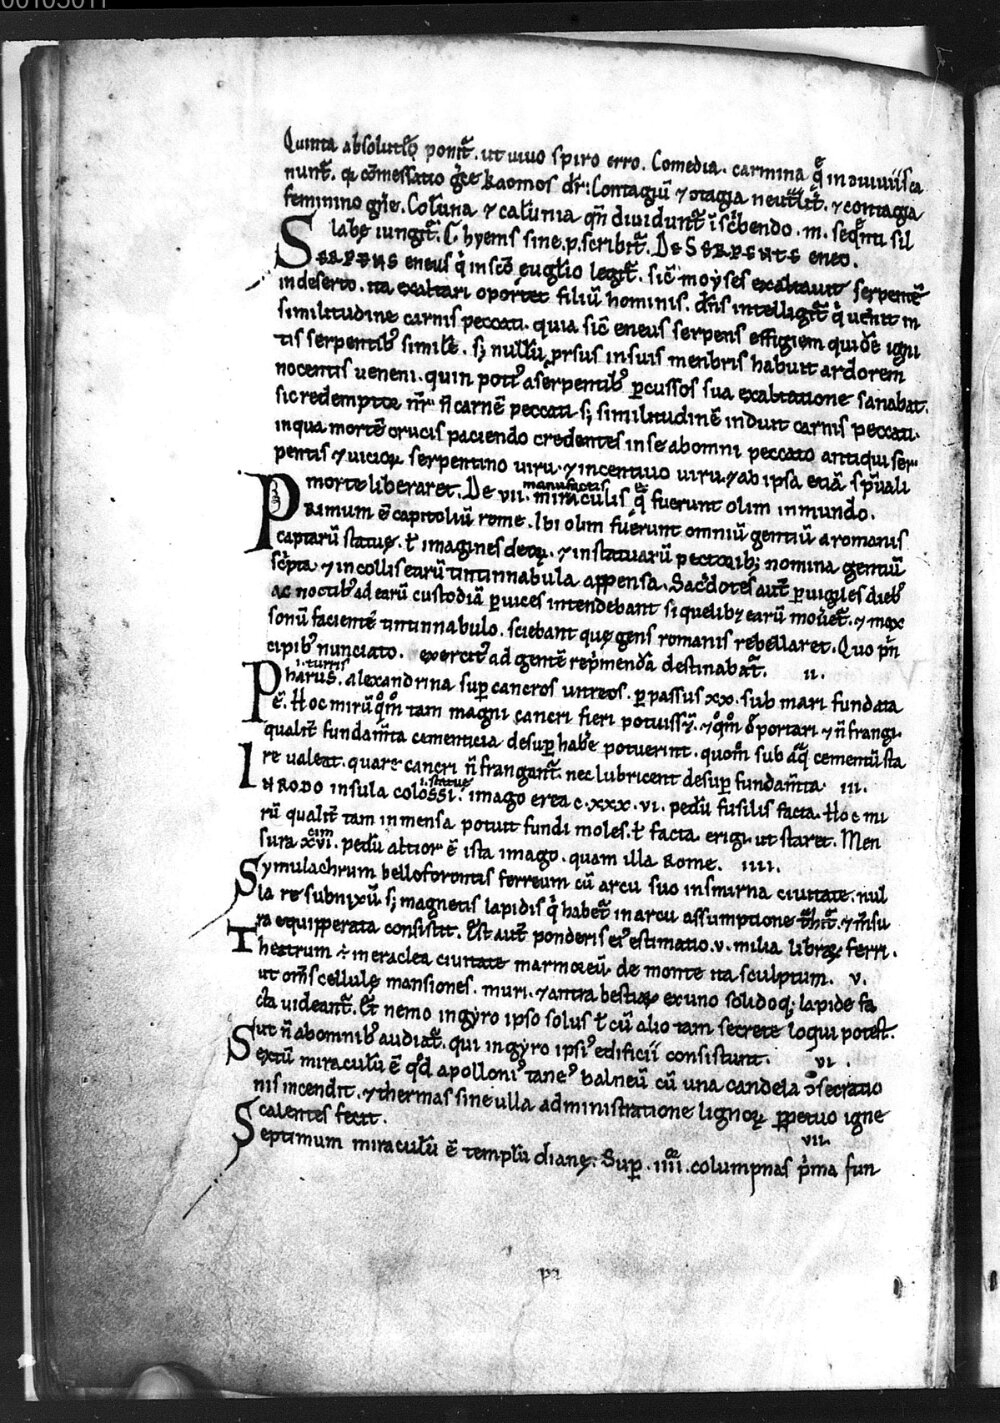 Quinta absolute ponit̃. ut uiuo spiro erro. Comedia. carmina q̃ in
nunt̃. q̃ cõmessatio gr̃ce kaomos dr̃: Contagiũ ⁊ otagia neutꝉit̃. ⁊ contagia
feminino gñe. Colũna ⁊ calũnia qñ diuidunt̃ ĩ scͥbendo. m. seqñti sil
labę iungit̃. Ꞇ hyems sine .p. scribit̃. De SERPENTE eneo.
SERPENS eneus q̇ in scõ euglĩo legit̃. sic̃ moẏses exaltauit serpentẽ
in deserto. ita exaltari oportet filiũ hominis. dñs intelligit̃ q̇ uenit in
similitudine carnis peccati. quia sic̃ eneus serpens effigiem quidẽ igni
tis serpentibꝰ similẽ. sꝫ nullũ prsus in suis menbris habuit ardorem
nocentis ueneni. quin potiꝰ a serpentibꝰ ꝑcussos sua exaltatione sanabat.
sic redemptor nr̃ ñ carnẽ peccati sꝫ similitudinẽ induit carnis peccati.
in qua mortẽ crucis paciendo credentes in se ab omni peccato antiqui ser
pentis ⁊ uicioꝝ serpentino uiru. ⁊ incentiuo uiru. ⁊ ab ipsa etiã spũali
morte liberaret. De vii. miraculis q̃ fuerunt olim in mundo.
manufactis
PRIMUM ẽ capitoliũ rome. Ibi olim fuerunt omniũ gentiũ a romanis
captarũ statuę. ꝉ imagines deoꝝ. ⁊ in statuarũ pectoribꝫ nomina gentiũ
scͥpta. ⁊ in collis earũ tintinnabula appensa. Sacerdotes aut̃ ꝑuigiles diebꝰ
ac noctibꝰ ad earũ custodiã ꝑ uices intendebant si quelibꝫ earũ mouet̃. ⁊ mox
sonũ facientẽ tintinnabulo. sciebant quę gens romanis rebellaret. Quo pͥn
cipibꝰ nunciato. exercitꝰ ad gentẽ rep̃mendã destinabat̃. ii.
.i. turris
Pharus. alexandrina sup̱ cancros uitreos. ꝑ passus xx. sub mari fundata
ẽ. Hoc mirũ qͦm̃ tam magni cancri fieri potuissñt. ⁊ qͦm̃ deportari. ⁊ ñ frangi.
qualit̃ fundam̃ta cementicia desuꝑ habe potuerint. quom̃ sub aq̃ cementũ sta
re ualeat. quare cancri ñ frangant̃. nec lubricent desuꝑ fundam̃ta. iii.
.i. statue
IN RODO insula colossi. imago erea c.xxx.vi. pedũ fusilis facta. Hoc mi
rũ qualit̃ tam inmensa potuit fundi moles. ꝉ facta erigi. ut staret. Men
sura xvi. pedũ altior ẽ ista imago. quam illa Rome. iiii.
Symulachrum belloforontis ferreum cũ arcu suo in smirna ciuitate. nul
la re subnixũ sꝫ magnetis lapidis q̇ habet̃ in arcu assumptione
ra equipperata consistit. Est aut̃ ponderis eiꝰ estimatio .v. milia libraꝝ ferri.
Theatrum ÷ in eraclea ciuitate marmoreũ de monte ita sculptum. v.
ut om̃s cellulę mansiones. muri. ⁊ antra bestiaꝝ ex uno solidoqꝫ lapide fa
cta uideant̃. Et nemo in gẏro ipso solus ꝉ cũ alio tam secrete loqui potest.
ut ñ ab omnibꝰ audiat̃. qui in gẏro ipsiꝰ edificii consistunt. vi.
Sextũ miraculũ ẽ qͦd apolloniꝰ taneꝰ balneũ cũ una candela ↄsecratio
nis incendit. ⁊ thermas sine ulla administratione lignoꝝ ꝑpetuo igne
calentes fecit. vii.
Septimum miraculũ ẽ templũ dianę. Sup̱ .iiii. columpnas pͥma fun